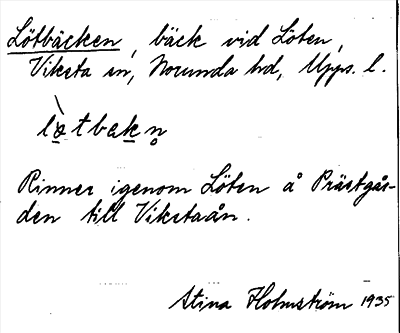 Lötbäcken, bäck vid Löten,
Viksta sn, Norunda hd, Upps. l.
lø̀tbɛkn̥
Rinner igenom Löten å Prästgår-
den till Vikstaån.
Stina Holmström 1935